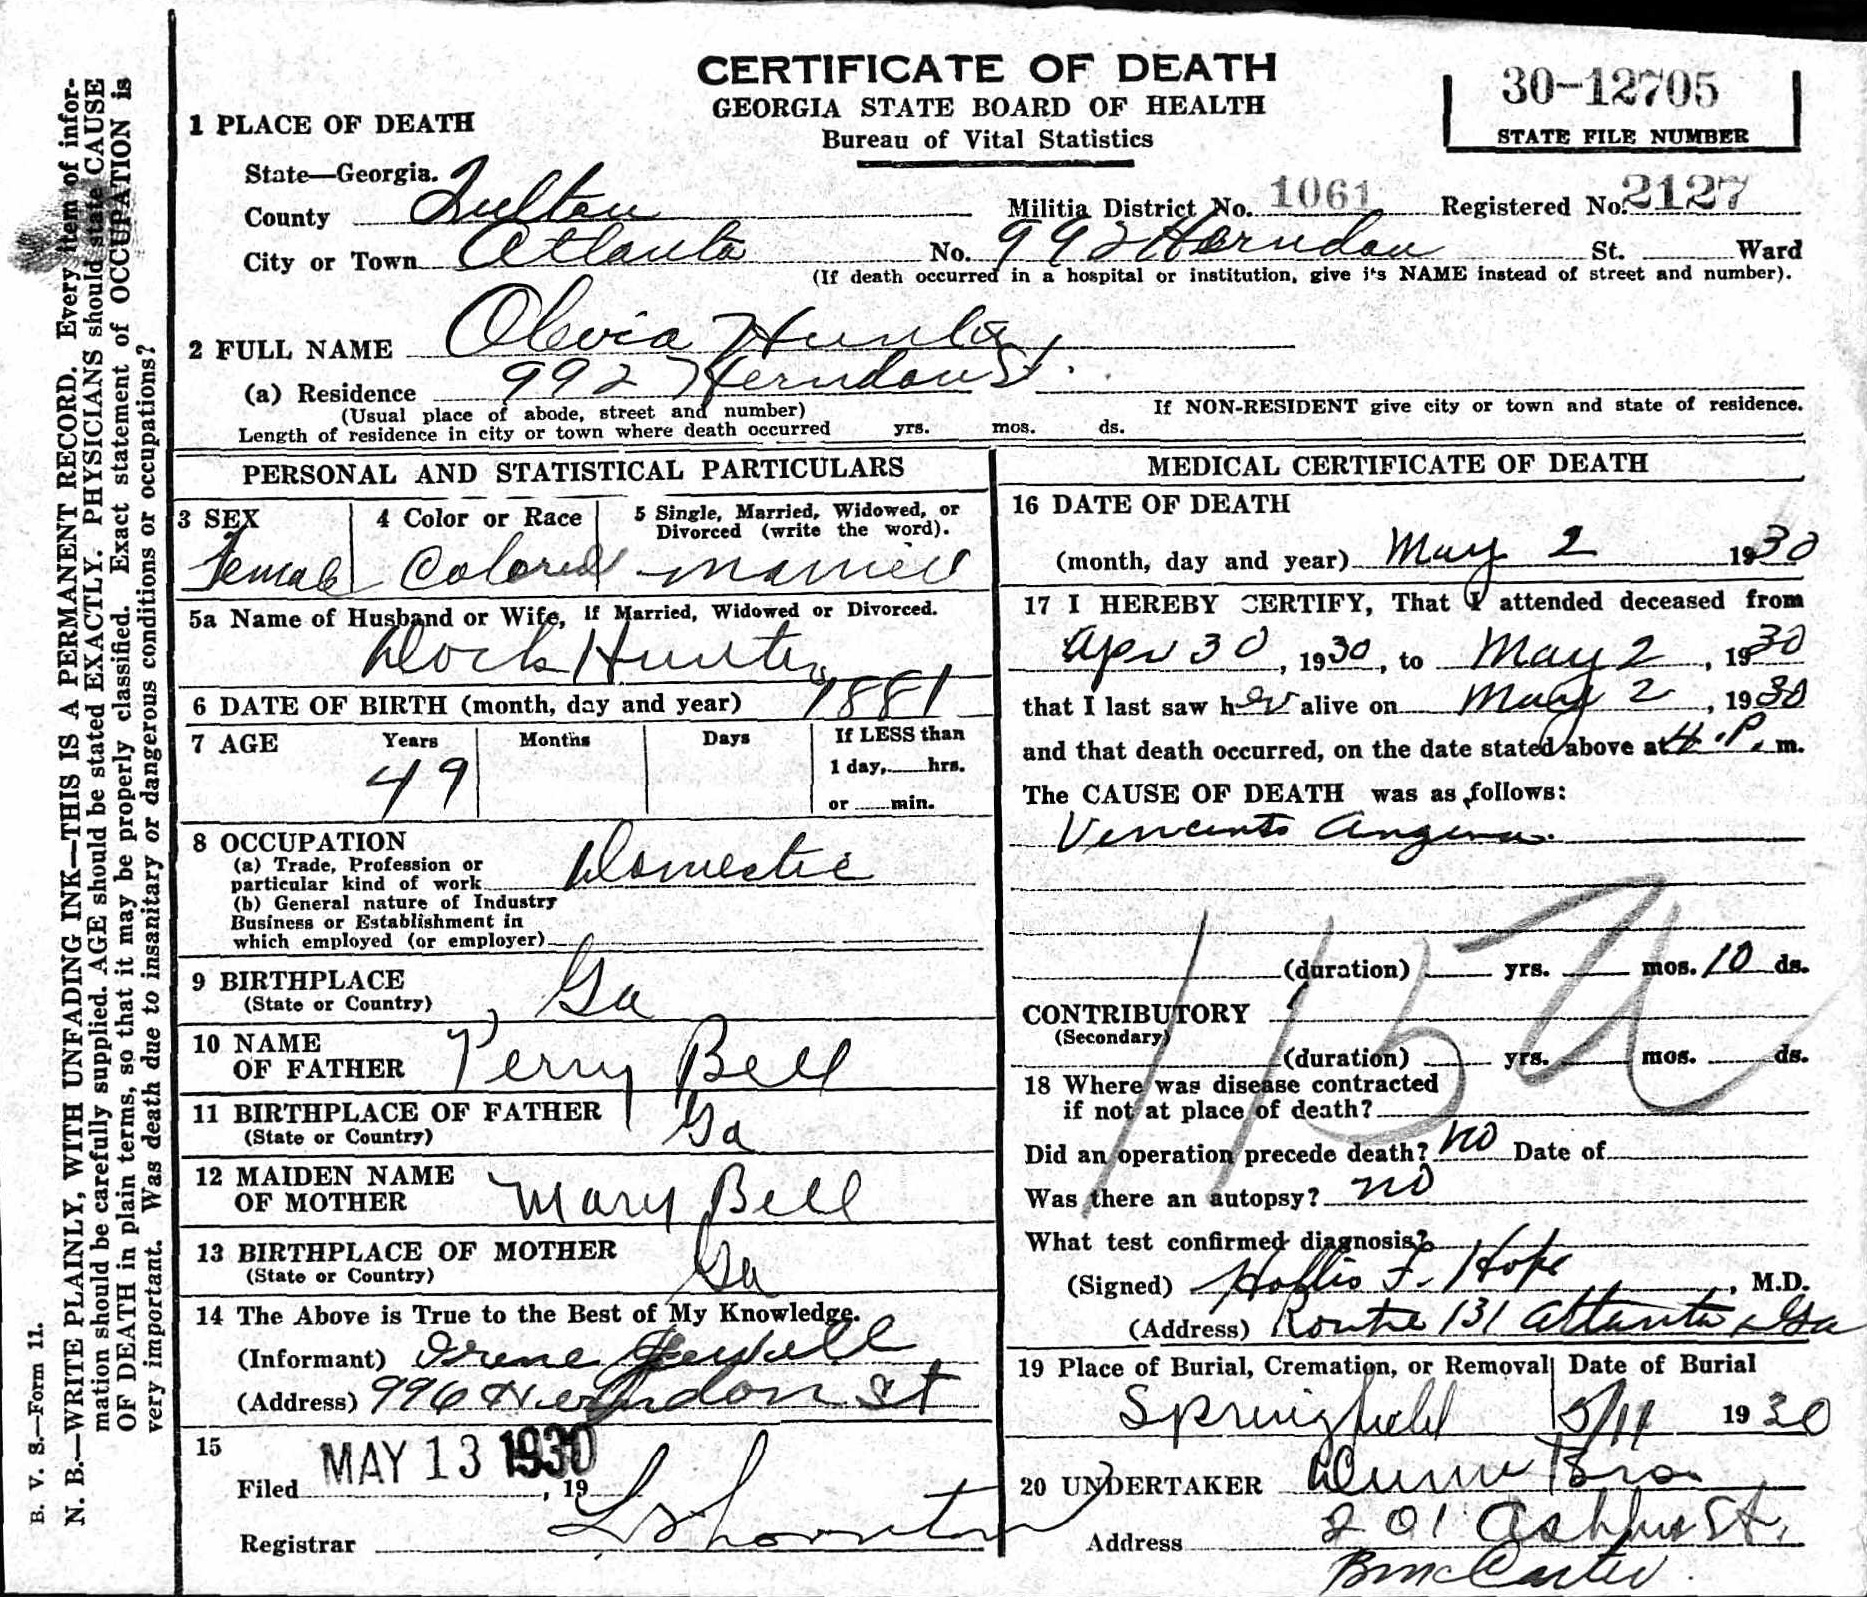 CERTIFICATE OF DEATH
GEORGIA STATE BOARD OF HEALTH
Bureau of Vital Statistics
30-12705
STATE FILE NUMBER
1 PLACE OF DEATH
State—Georgia.
County Fulton Militia District No. 1061 Registered No. 2127
City or Town Atlanta No. 992 Herndon St. Ward
(If death occurred in a hospital or institution, give i's NAME instead of street and number).
2 FULL NAME Olevia Hunter
(a) Residence 992 Herndon St.
(Usual place of abode, street and number) If NON-RESIDENT give city or town and state of residence.
Length of residence in city or town where death occurred yrs. mos. ds.
PERSONAL AND STATISTICAL PARTICULARS
3 SEX 4 Color or Race 5 Single, Married, Widowed, or
Divorced (write the word).
Female Colored Married
5a Name of Husband or Wife, if Married, Widowed or Divorced.
Dock Hunter
6 DATE OF BIRTH (month, day and year) 1881
7 AGE Years Months Days If LESS than
49 1 day, hrs.
or min.
8 OCCUPATION
(a) Trade, Profession or
particular kind of work Domestic
(b) General nature of Industry
Business or Establishment in
which employed (or employer)
9 BIRTHPLACE
(State or Country) Ga
10 NAME
OF FATHER Perry Bell
11 BIRTHPLACE OF FATHER
(State or Country) Ga
12 MAIDEN NAME
OF MOTHER Mary Bell
13 BIRTHPLACE OF MOTHER
(State or Country) Ga
14 The Above is True to the Best of My Knowledge.
(Informant) Irene
(Address) 996 Herndon St
15
Filed MAY 13 1930, 19
Registrar
MEDICAL CERTIFICATE OF DEATH
16 DATE OF DEATH
(month, day and year) May 2 1930
17 I HEREBY CERTIFY, That I attended deceased from
Apr 30, 1930, to May 2, 1930
that I last saw her alive on May 2, 1930
and that death occurred, on the date stated above at 4.P.m.
The CAUSE OF DEATH was as follows:
Vencents Angina
(duration) yrs. mos. 10 ds.
115a
CONTRIBUTORY
(Secondary)
(duration) yrs. mos. ds.
18 Where was disease contracted
if not at place of death?
Did an operation precede death? no Date of
Was there an autopsy? no
What test confirmed diagnosis?
(Signed) Hollis F. Hope, M.D.
(Address) Route 131 Atlanta Ga
19 Place of Burial, Cremation, or Removal Date of Burial
Springfield 5/11 1930
20 UNDERTAKER Dunn Bros
Address 201 Ashby St.
B McCarter
B. V. S.—Form 11.
N. B.—WRITE PLAINLY, WITH UNFADING INK—THIS IS A PERMANENT RECORD. Every item of infor-
mation should be carefully supplied. AGE should be stated EXACTLY. PHYSICIANS should state CAUSE
OF DEATH in plain terms, so that it may be properly classified. Exact statement of OCCUPATION is
very important. Was death due to insanitary or dangerous conditions or occupations?